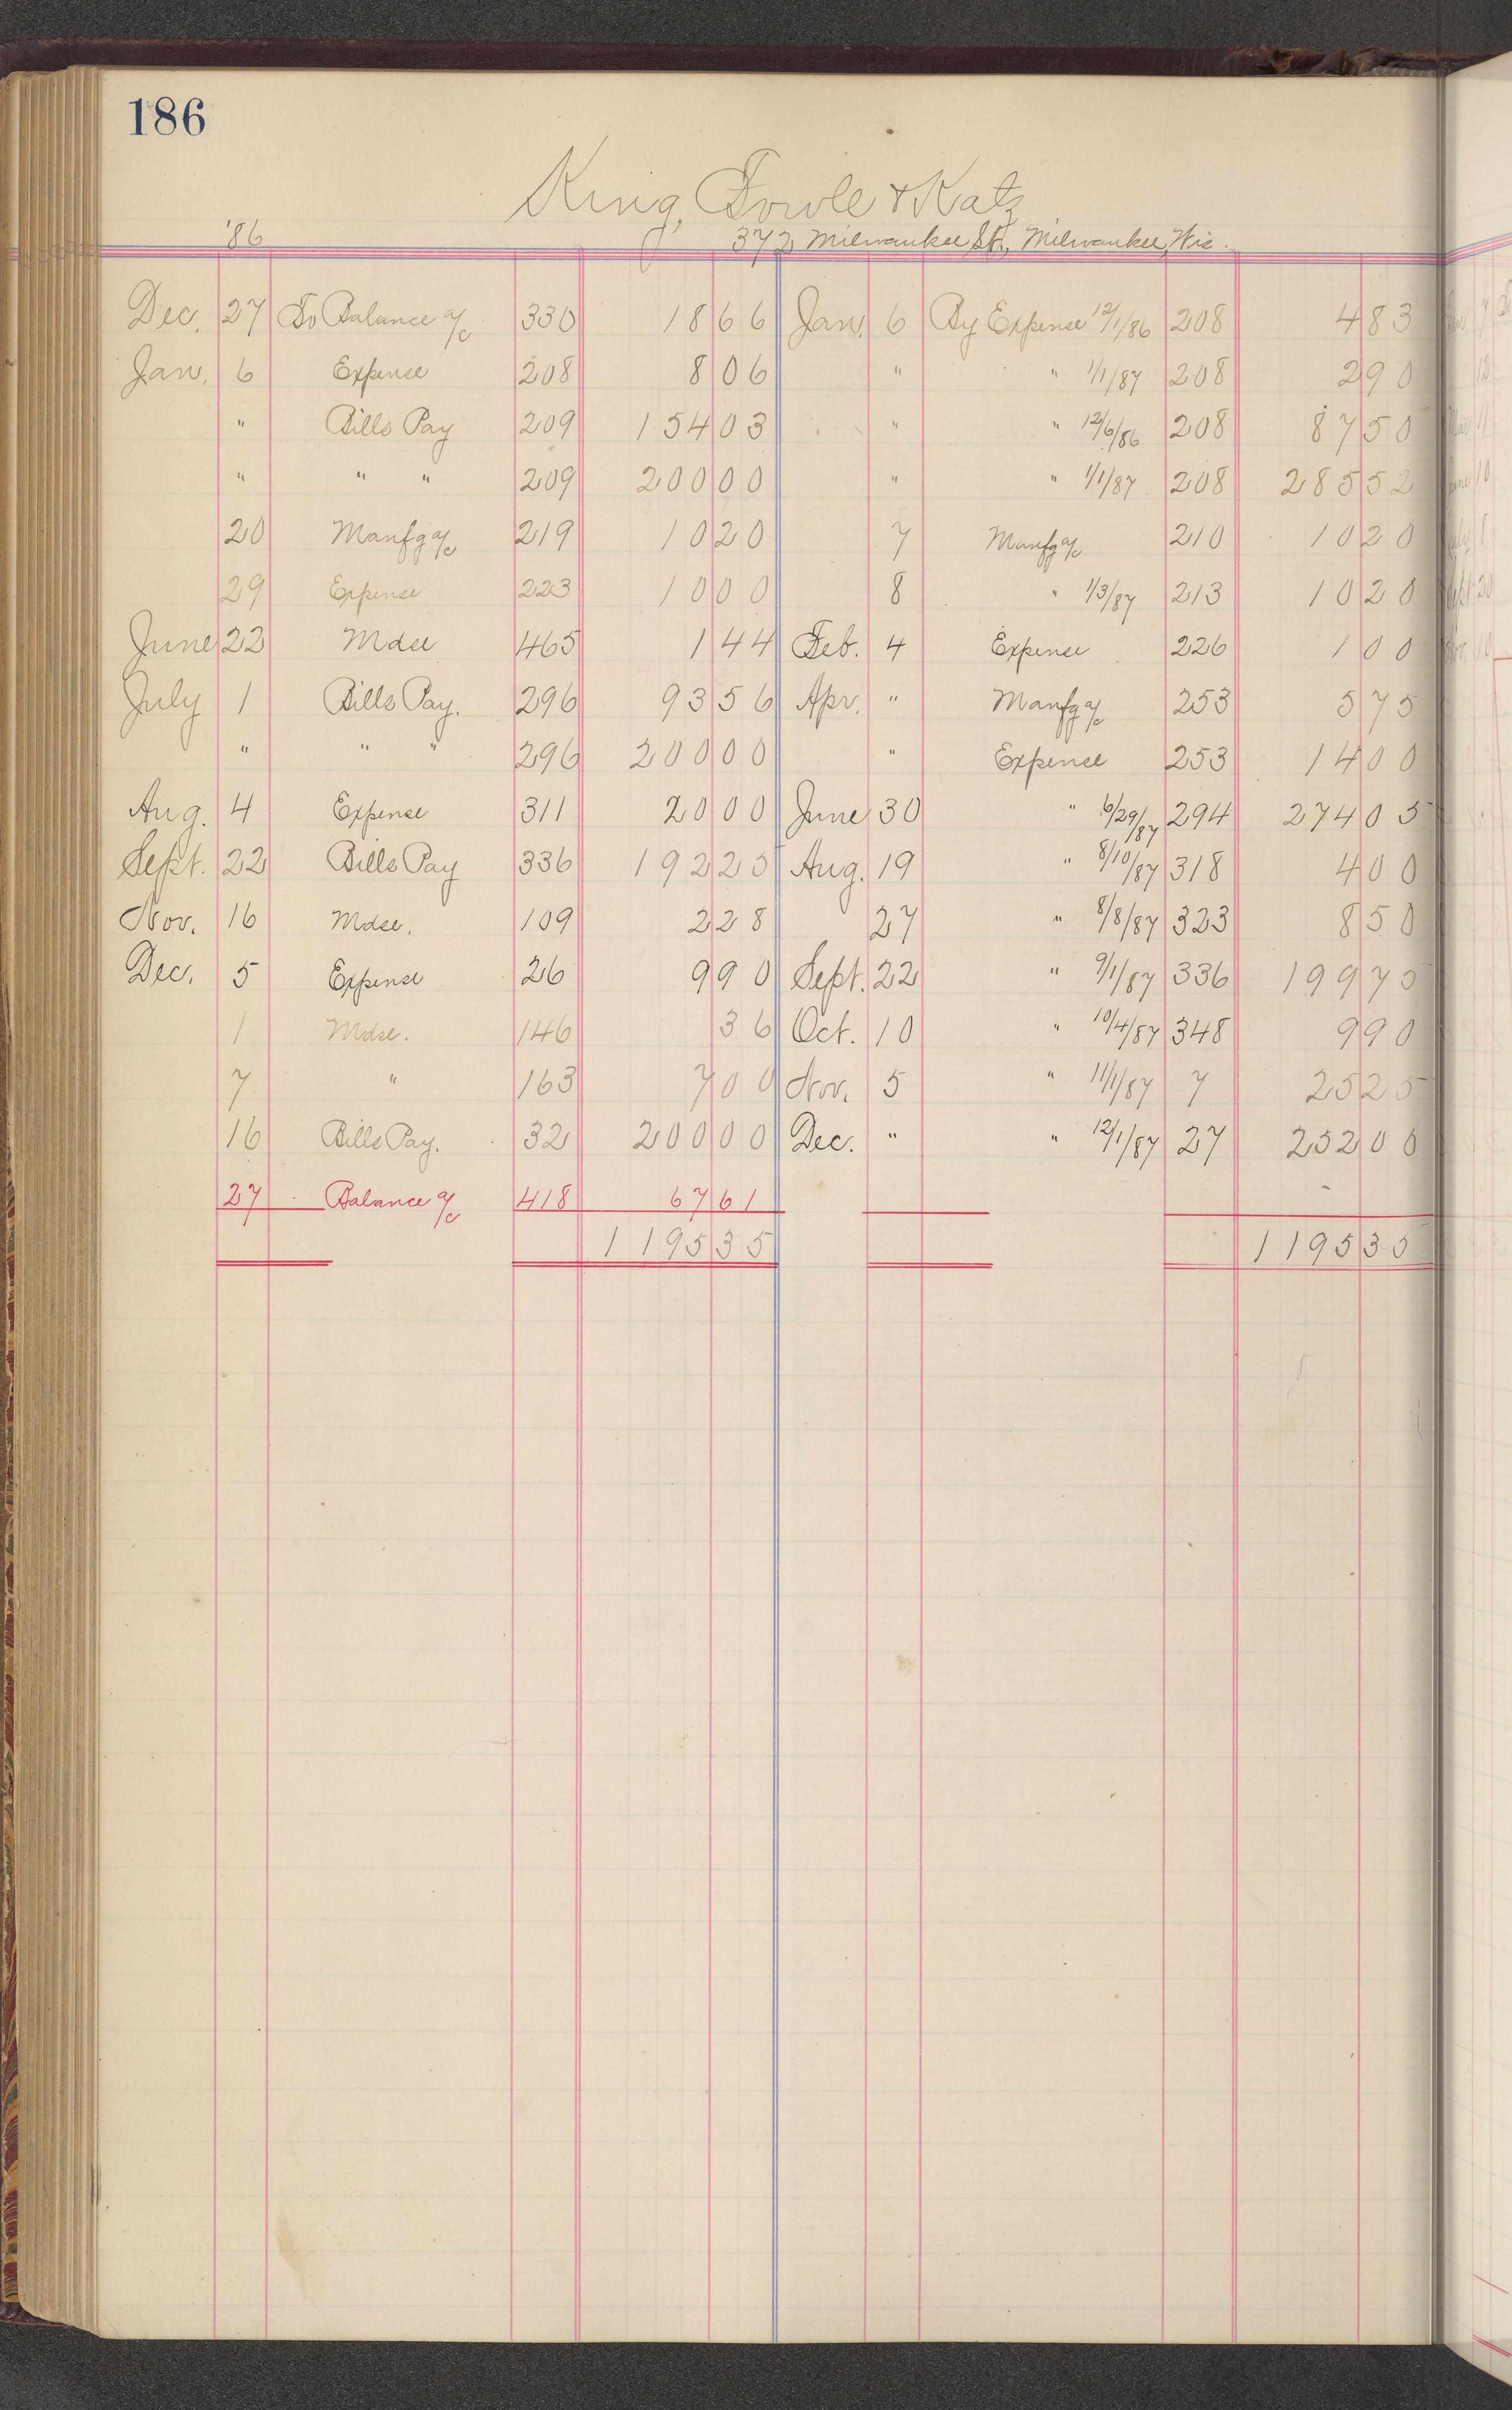 186
King, Fowle & Katz
'86 372 Milwaukee St., Milwaukee, Wis.
Dec. 27 To Balance a/c 330 18 66 Jan. 6 By Expense 12/1/86 208 4 83
Jan. 6 Expense 208 8 06 " " 1/1/87 208 2 90
" Bills Pay 209 154 03 " " 12/6/86 208 87 50
" " " 209 200 00 " " 1/1/87 208 285 52
20 Manfg a/c 219 10 20 7 Manfg a/c 210 10 20
29 Expense 223 10 00 8 " 1/3/87 213 10 20
June 22 Mdse 465 1 44 Feb. 4 Expense 226 1 00
July 1 Bills Pay. 296 93 56 Apr. " Manfg a/c 253 5 75
" " " 296 200 00 " Expense 253 14 00
Aug. 4 Expense 311 20 00 June 30 " 6/29/87 294 274 05
Sept. 22 Bills Pay 336 192 25 Aug. 19 " 8/10/87 318 4 00
Nov. 16 Mdse. 109 2 28 27 " 8/8/87 323 8 50
Dec. 5 Expense 26 9 90 Sept. 22 " 9/1/87 336 199 75
1 Mdse. 146 36 Oct. 10 " 10/4/87 348 9 90
7 " 163 7 00 Nov. 5 " 11/1/87 7 25 25
16 Bills Pay. 32 200 00 Dec. " " 12/1/87 27 252 00
27 Balance a/c 418 67 61
1195 35 1195 35